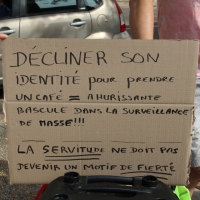 DÉCLINER SON
IDENTITÉ POUR PRENDRE
UN CAFÉ = AHURISSANTE
BASCULE DANS LA SURVEILLANCE
DE MASSE!!!
LA SERVITUDE NE DOIT PAS
DEVENIR UN MOTIF DE FIERTÉ